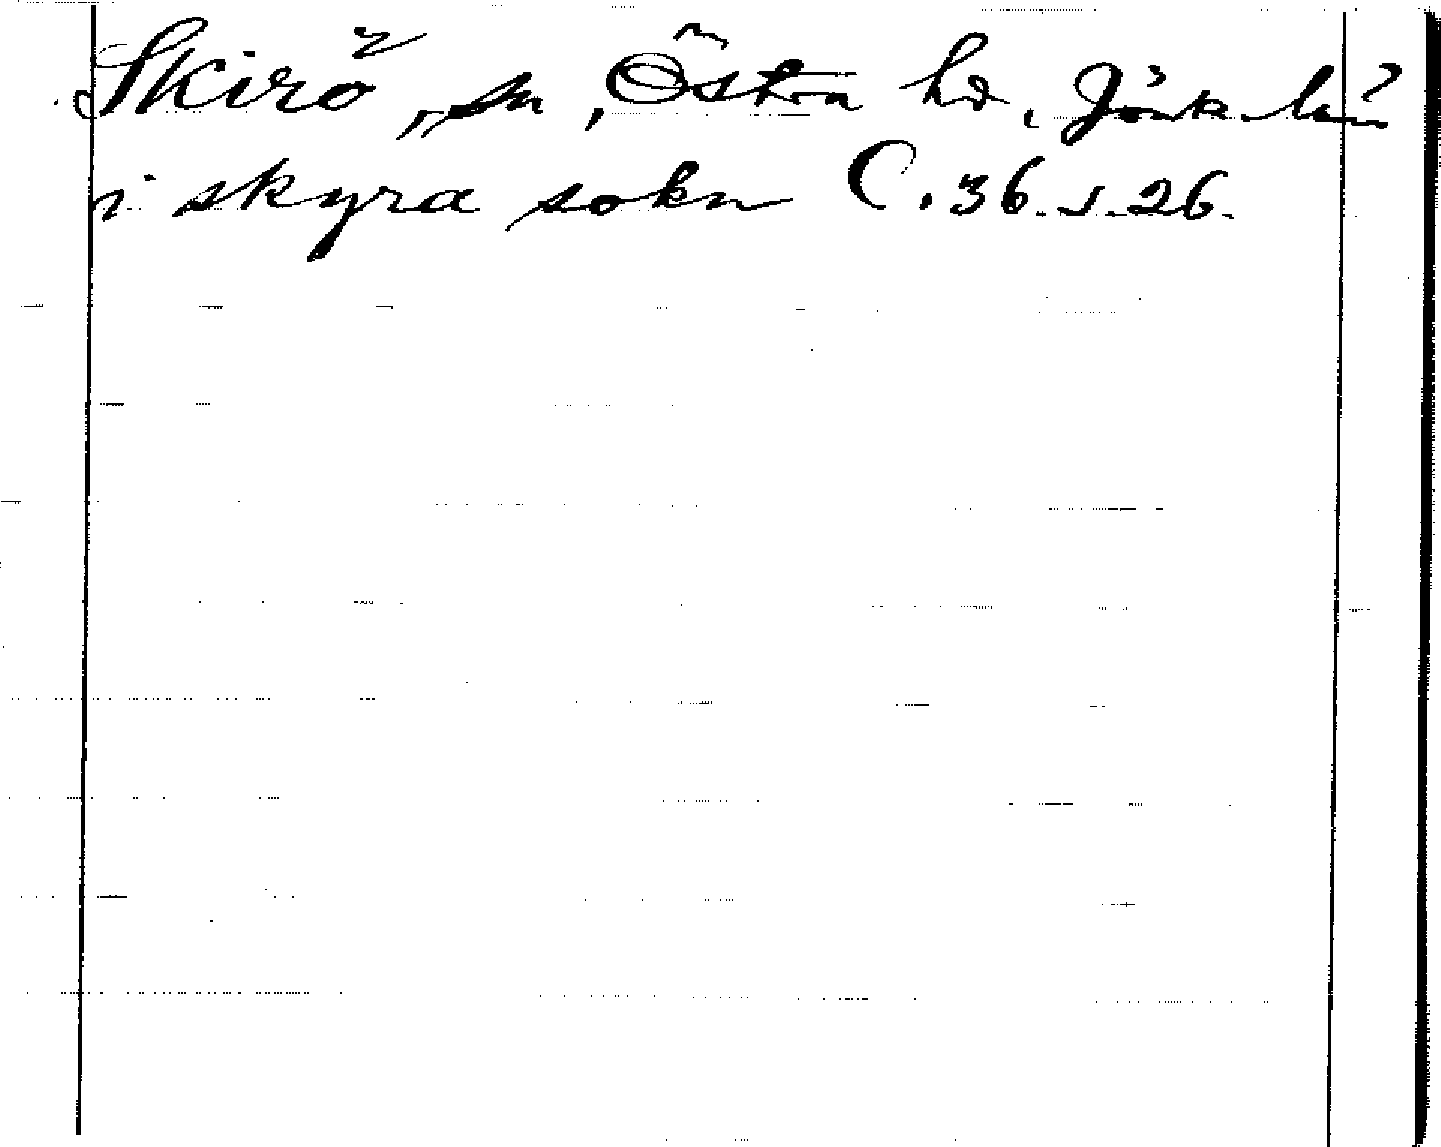 Skirö, sn, Östra hd, Jönk. län
i skyra sokn C. 36. s. 26.